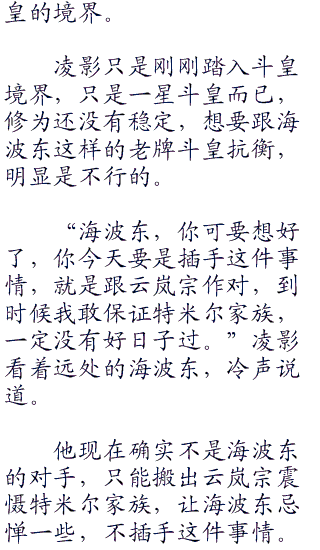 皇的境界。
凌影只是刚刚踏入斗皇
境界，只是一星斗皇而已，
修为还没有稳定，想要跟海
波东这样的老牌斗皇抗衡，
明显是不行的。
“海波东，你可要想好
了，你今天要是插手这件事
情，就是跟云岚宗作对，到
时候我敢保证特米尔家族，
一定没有好日子过。”凌影
看着远处的海波东，冷声说
道。
他现在确实不是海波东
的对手，只能搬出云岚宗震
慑特米尔家族，让海波东忌
惮一些，不插手这件事情。